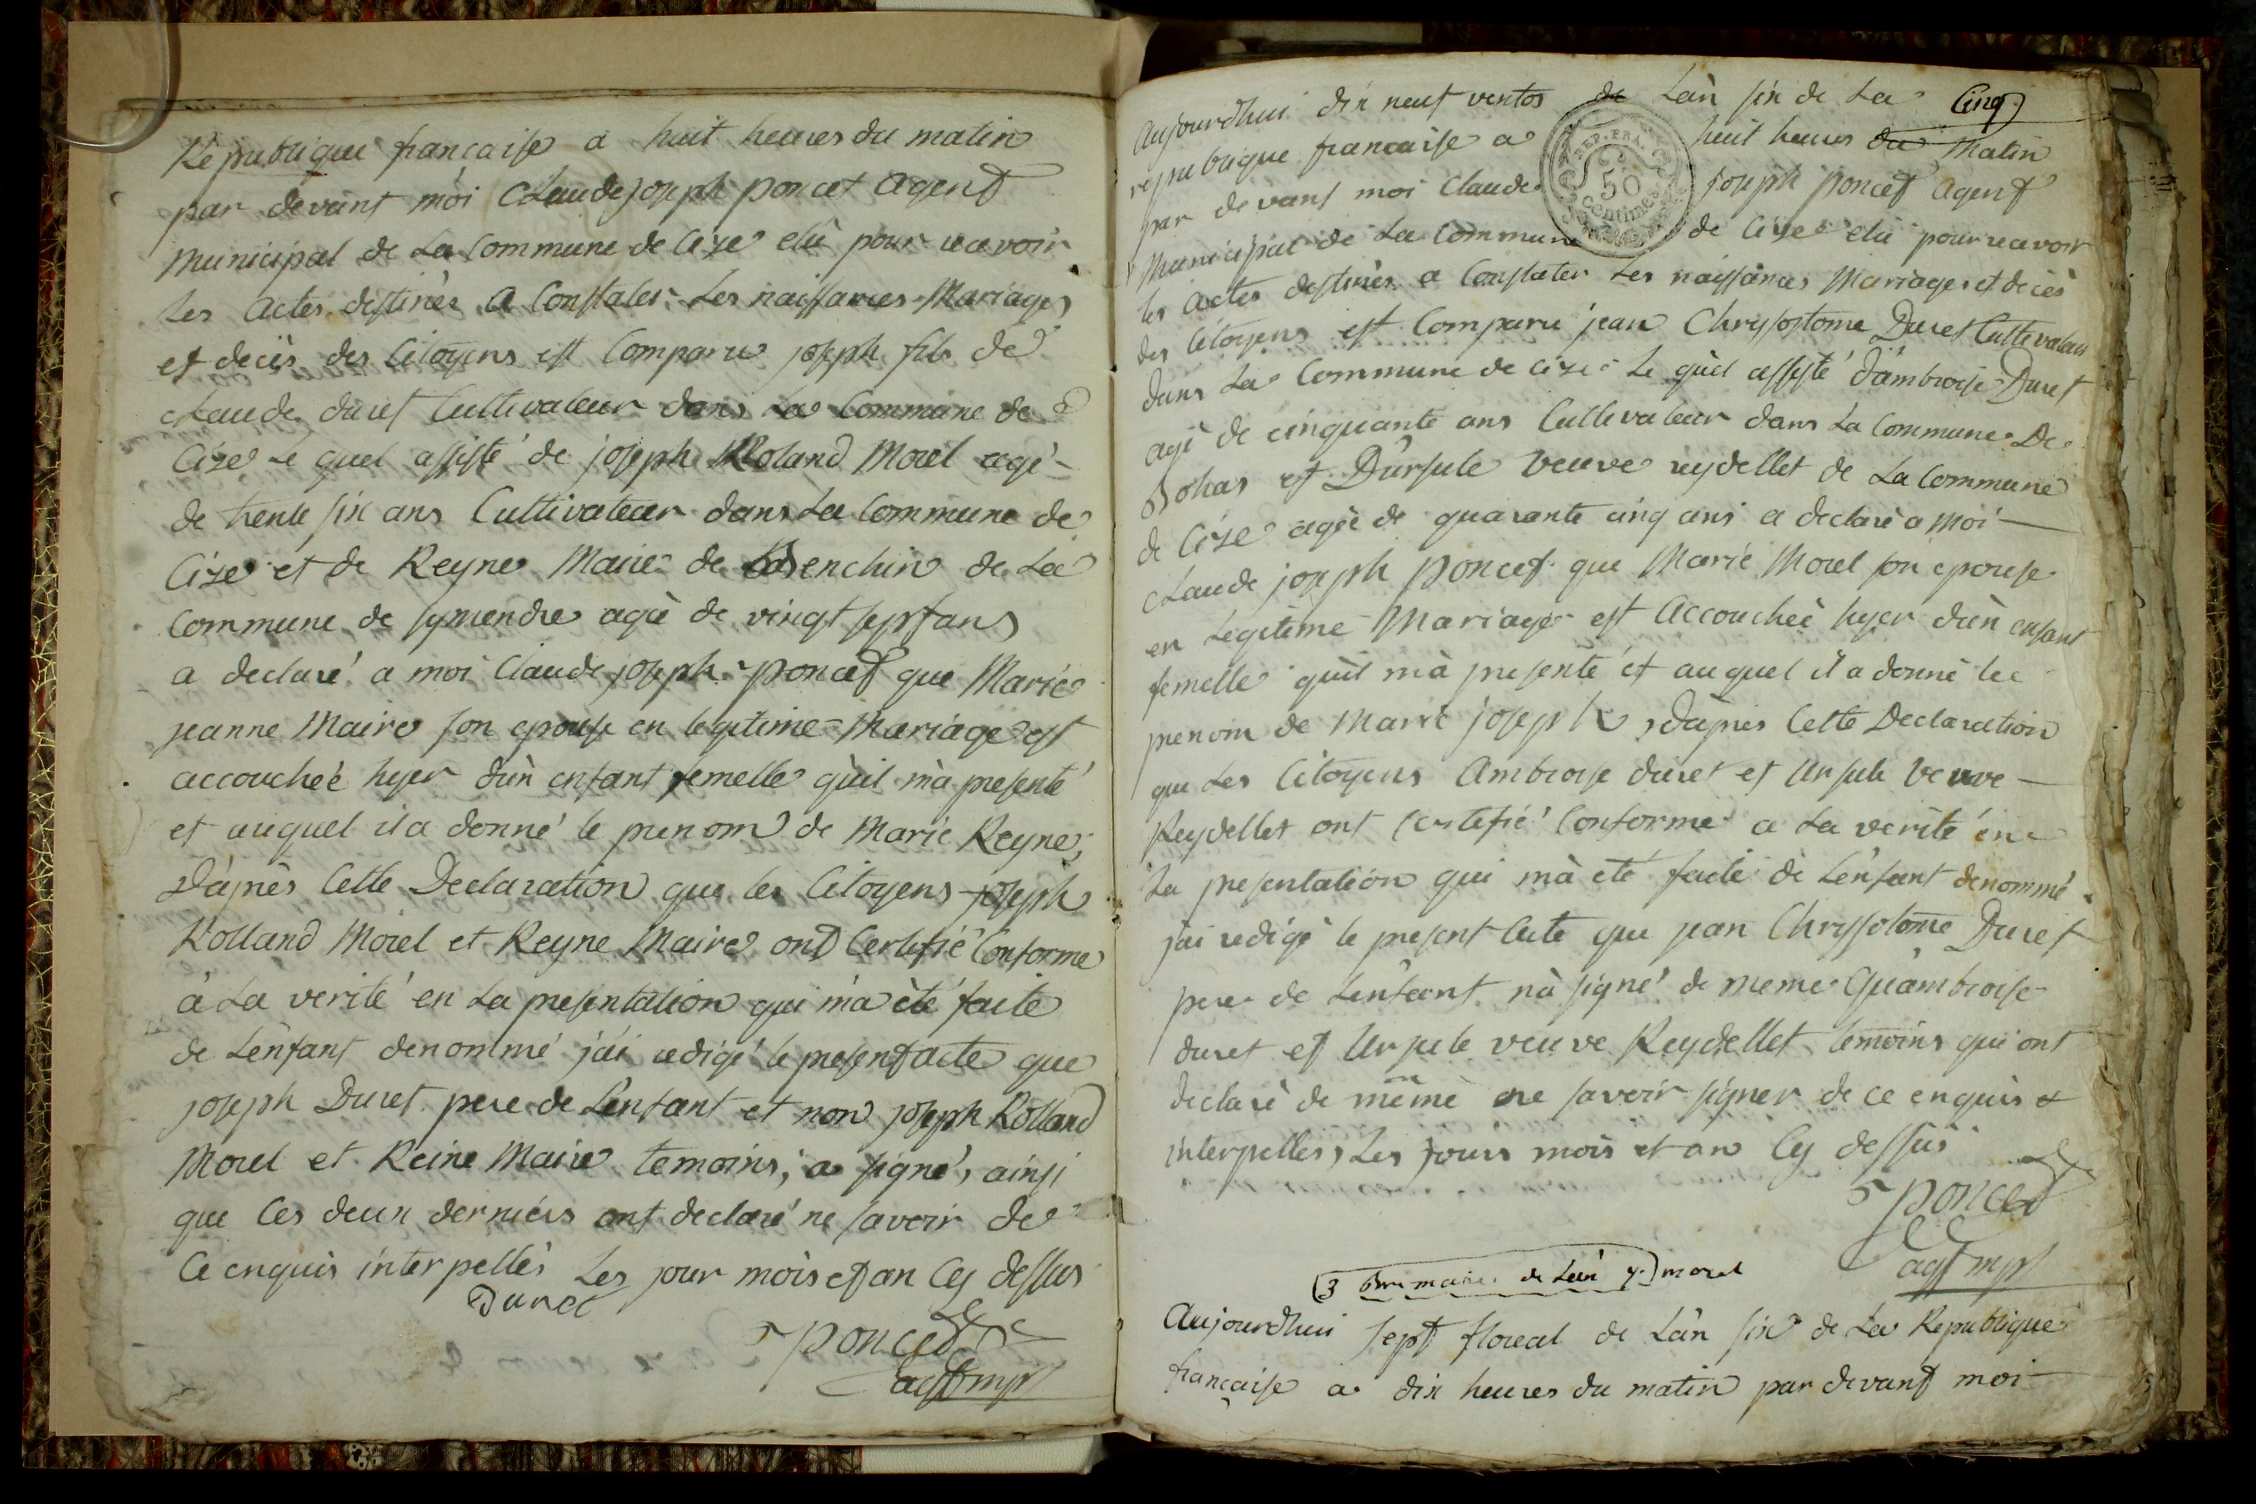 Republique française a huit heures du matin
par devant moi Claude joseph poncet agent
municipal de La Commune de Cize elû pour recevoir
Les actes destinès a Constater Les naissances Mariages
et decès des Citoÿens est Comparu joseph fils de
claude duret Cultivateur dans La Commune de
Cize Le quel assisté de joseph Roland Morel agé
de trente six ans Cultivateur dans La Commune de
Cize et de Reyne Maire de Benchin de La
Commune de symendre agèe de vingt sept ans
a declaré a moi Claude joseph poncet que Marie
jeanne Maire son epouse en legitime Mariage est
accouchéé hyer dùn enfant femelle qùil mà presenté
et auquel il a donné le prenom de Marie Reyne,
Dàprès Cette Declaration que les Citoyens joseph
Rolland Morel et Reyne Maire ont Certifié Conforme
à La verité en La presentation qui mà èté faite
de Lènfant denommé jài redigé le present acte que
joseph Duret pere de Lènfant et non joseph Rolland
Morel et Reine Maire temoins, a signé, ainsi
que Ces deux derniers ont declaré ne savoir de
Ce enquis interpellès Les jour mois et an Cy dessus
Duret
poncet
agt mpl
Cinq
Aujourdhui dix neuf ventos de Làn six de La
republique francaise a huit heures du Matin
par devant moi Claude joseph poncet agent
REP. FRA.
50
centimes
Municipal de La Commune de Cize elû pour recevoir
les actes destinès a Constater Les naissances Mariages et decès
des Citoyens est Comparu jean Chrysostome Duret Cultivateur
dans La Commune de cize Le quèl assisté dàmbroise Duret
agé de cinquante ans Cultivateur dans La Commune De
Bohas et Dùrsule Veuve reydellet de La Commune
de Cize agèe de quarante cinq ans a declarè a moi
claude joseph poncet que Marie Morel son epouse
en Legitime Mariage est Accouchéè hyer dùn enfant
femelle qùil mà presenté et auquel il a donné le
prenom de Marie joseph, dàpres Cette Declaration
que Les Citoyens Ambroise duret et Ursule Veuve
Reydellet ont Certifié Conforme a La verité en
La presentation qui mà eté faite de Lènfant denommé
jài redigé le present Acte que jean Chrysotome Duret
pere de Lènfant nà signé de meme Quàmbroise
duret et Ursule veuve Reydellet temoins qui ont
declarè de même ne savoir signer de ce enquis et
interpelles, Les jours mois et an Cy dessùs
poncet
agt mpl
3 brumaire de Làn 7. morel
Aujourdhui sept floreal de Làn six de La Republique
française a dix heures du matin par devant moi